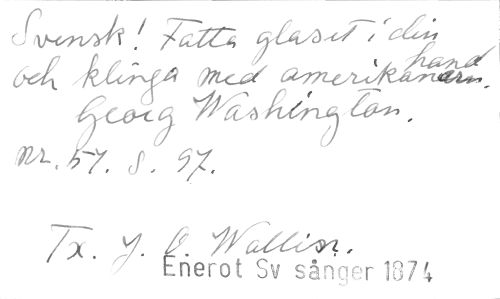 Svensk! Fatta glaset i din hand
och klinga med amerikanern.
Georg Washington.
nr. 57. s. 97.
Tx. J. O. Wallin.
Enerot Sv sånger 1874